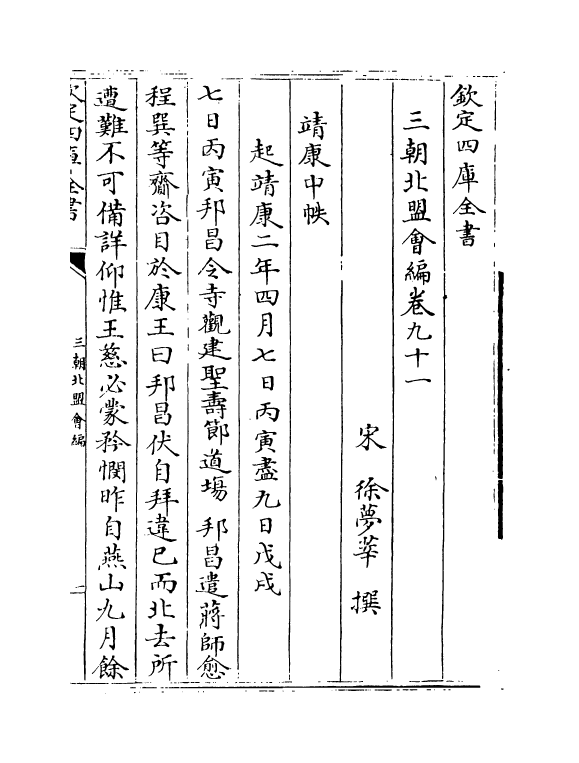 欽定四庫全書
三朝北盟會編卷九十一
宋 徐夢莘 撰
靖康中帙
起靖康二年四月七日丙寅盡九日戊戌
七日丙寅邦昌令寺觀建聖壽節道場 邦昌遣蔣師愈
程巽等齎咨目於康王曰邦昌伏自拜違已而北去所
遭難不可備詳仰惟王慈必蒙矜憫昨自燕山九月餘
欽定四庫全書
三朝北盟會編